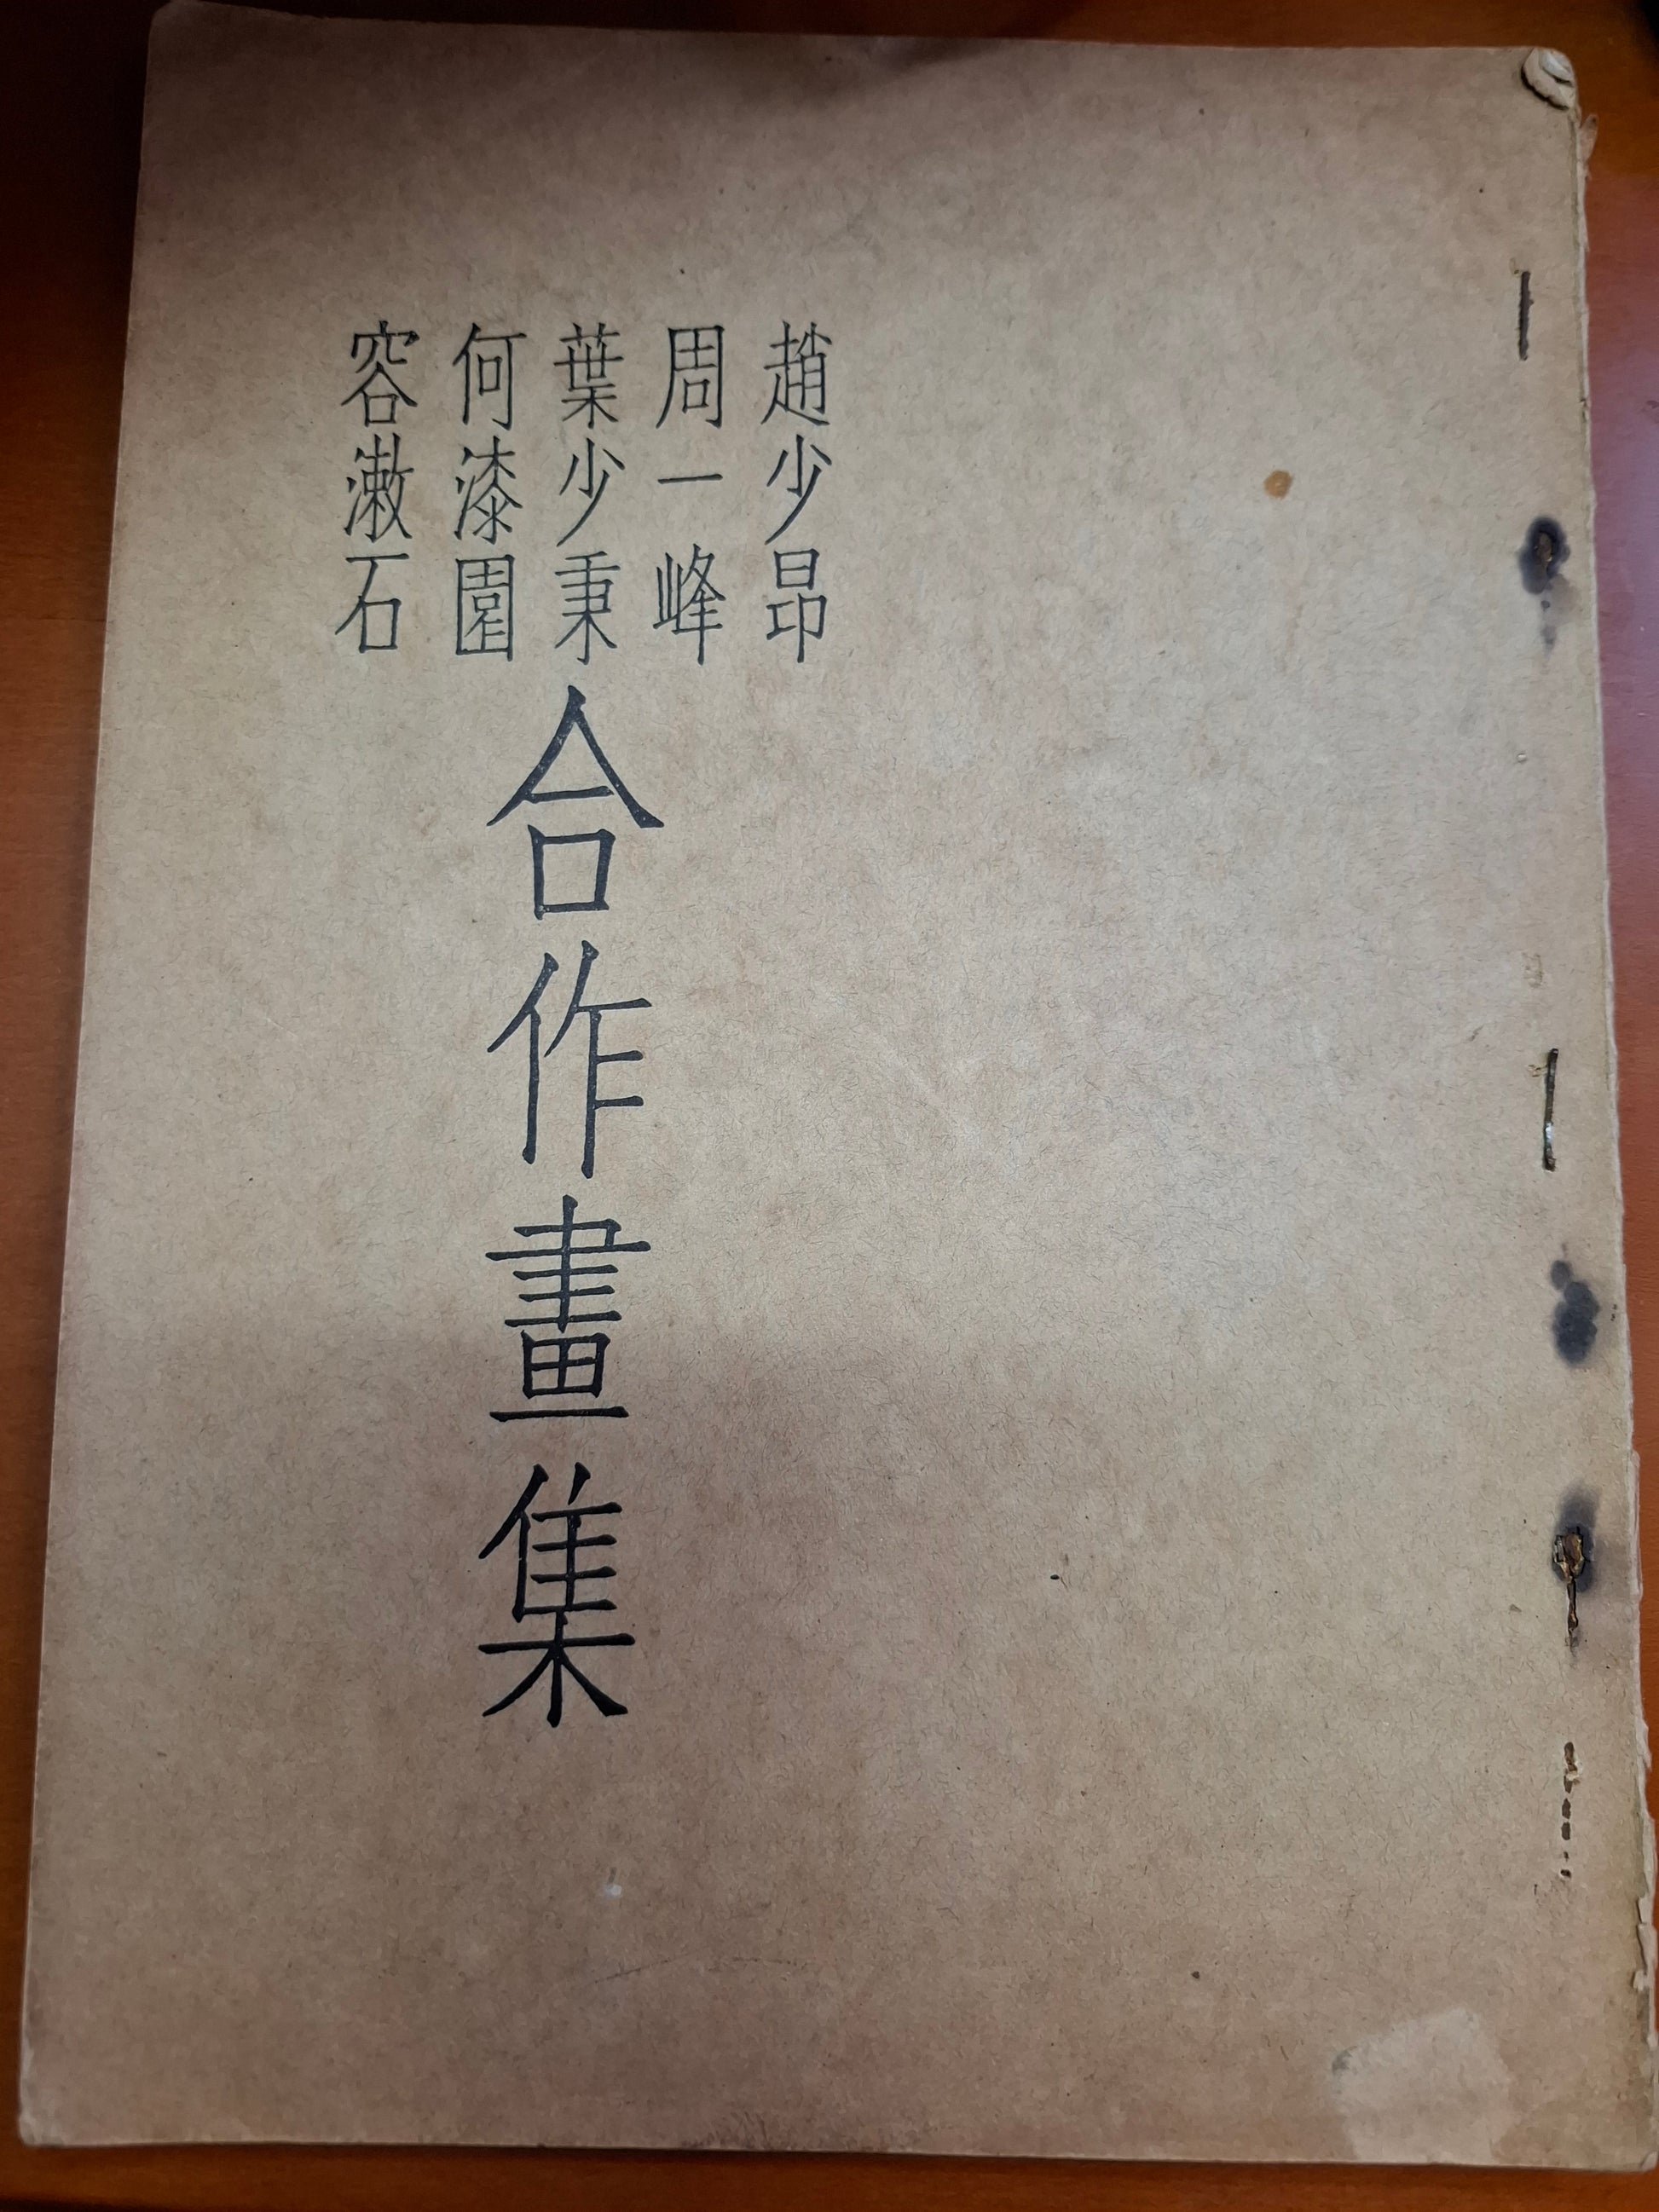 趙少昂
周一峰
葉少秉
何漆園
容漱石
合作畫集